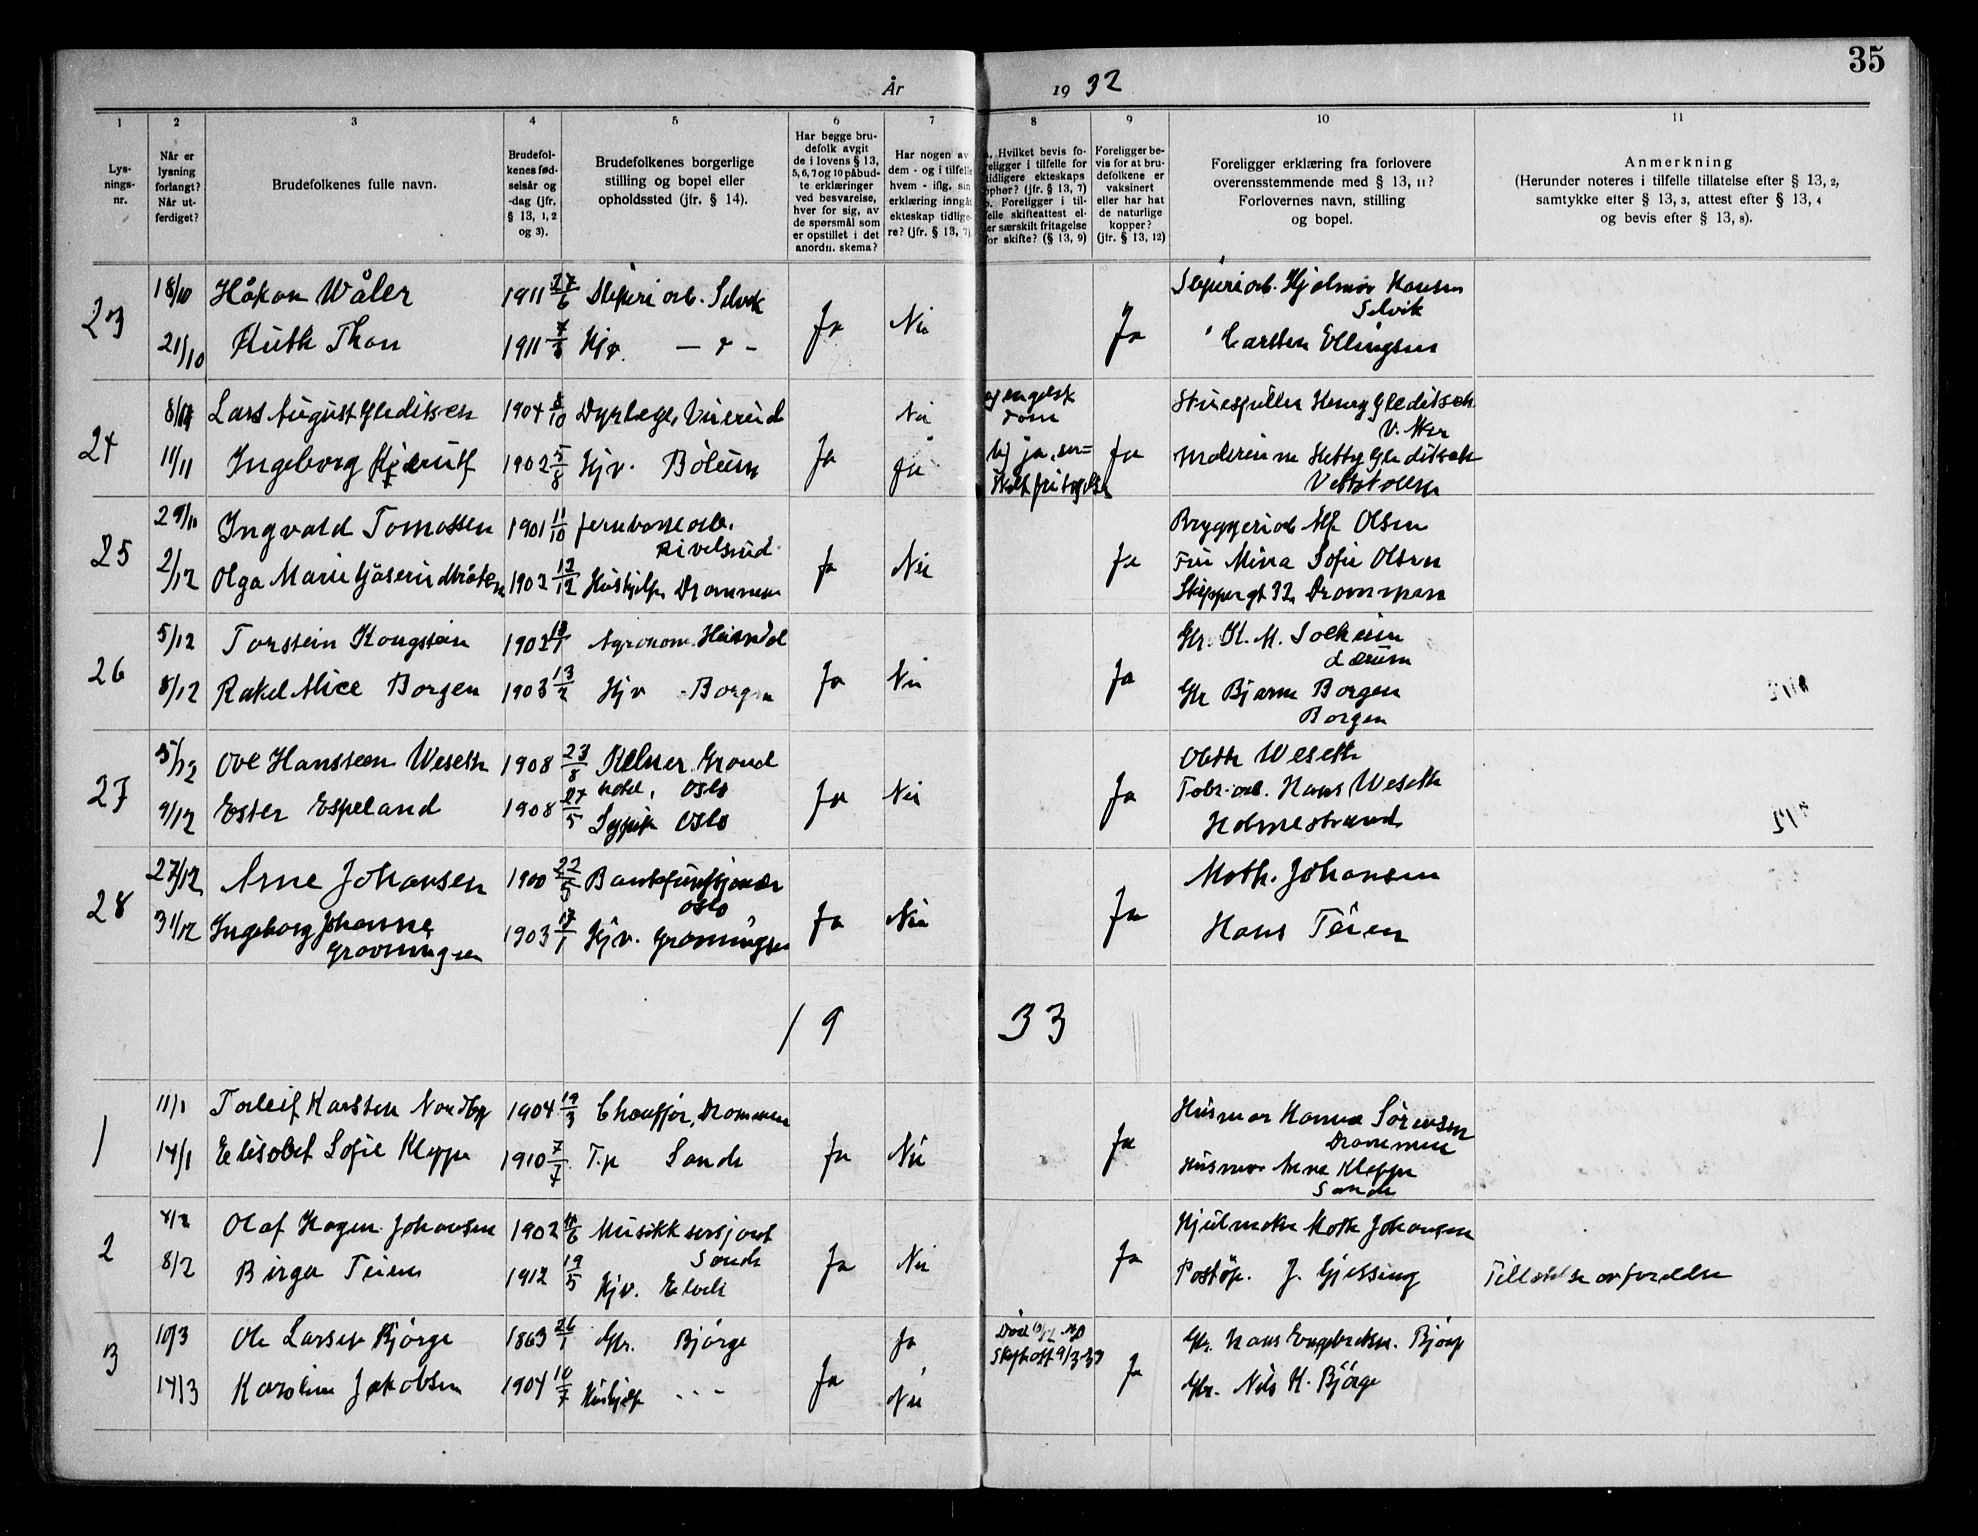 35
År 1932
1
2
3
4
5
6
7
8
9
10
11
Lys-
nings-
nr.
Når er
lysning
forlangt?
Når ut-
ferdiget?
Brudefolkenes fulle navn.
Brudefol-
kenes fød-
selsår og
-dag (jfr.
§ 13, 1, 2
og 3).
Brudefolkenes borgerlige
stilling og bopel eller
opholdssted (jfr. § 14).
Har begge bru-
defolk avgit
de i lovens § 13,
5, 6, 7 og 10 påbud-
te erklæringer
ved besvarelse,
hver for sig, av
de spørsmål som
er opstillet i det
anordn. skema?
Har nogen av
dem - og i tilfelle
hvem - iflg. sin
erklæring inngått
ekteskap tidlige-
re? (jfr. § 13, 7).
a. Hvilket bevis fo-
religger i tilfelle for
tidligere ekteskaps
ophør? (jfr. § 13, 7)
b. Foreligger i til-
felle skifteattest el-
ler særskilt fritagelse
for skifte? (§ 13, 9)
Foreligger be-
vis for at bru-
defolkene er
vaksinert
eller har hat
de naturlige
kopper?
(jfr. § 13, 12)
Foreligger erklæring fra forlovere
overensstemmende med § 13, 11?
Forlovernes navn, stilling
og bopel.
Anmerkning
(Herunder noteres i tilfelle tillatelse efter § 13, 2,
samtykke efter § 13, 3, attest efter § 13, 4
og bevis efter § 13, 8).
23
18/10 Håkon Wåler 1911 27/6 Sliperiarb. Selvik
21/10 Ruth Thon 1911 7/3 Hjv. — " —
Ja Nei Ja
Sliperiarb. Hjalmar Hansen
Selvik
" Carsten Ellingsen
24
8/11 Lars August Gleditsch 1904 8/10 Dyrlege,
11/11 Ingeborg Kjerulf 1902 5/8 Hjv. Bølum
Ja Nei
ja
a) engelsk
dom
b) ja, sær-
skilt fritagelse
Ja
Henry Gleditsch
V. Aker
Hetty Gleditsch
Vettakollen
25
29/11 Ingvald Tomassen 1901 11/10 Jernbanearb.
2/12 Olga Marie 1902 12/12 Hushjelp, Drammen
Ja Nei Ja
Bryggeriarb Alf Olsen
Fru Mina Sofie Olsen
Skippergt 32 Drammen
26
5/12 Torstein Kongstein 1902 Agronom
8/12 Rakel Alice Borgen 1903 13/2 Hjv Borgen
Ja Nei Ja
Gbr. K. M. Solheim
Gbr Bjarne Borgen
Borgen
27
5/12 Ove Hanssen Weseth 1908 23/8 Kelner Grand
hotel, Oslo
9/12 Ester Espeland 1908 27/5 Sypik Oslo
Ja Nei Ja
Weseth
Fabr.arb. Hans Weseth
Holmestrand
28
27/12 Arne Johansen 1900 22/5 Bankfunksjonær
Oslo
31/12 Ingeborg Johanne
Gravningen 1903 17/1 Hjv. Gravningen
Ja Nei Ja
Math. Johansen
Hans Teien
19 33
1
11/1 Torleif Karsten Nordby 1904 19/3 Chauffør, Drammen
14/1 Elisabet Sofie Kleppe 1910 7/4 T.p Sande
Ja Nei Ja
Husmor Hanna Sørensen
Drammen
Husmor Anna Kleppe
Sande
2
4/2 Olaf Hagen Johansen 1902 Musikksersjant
Sande
8/2 Birger Teien 1912 19/5 Hjv.
Ja Nei Ja
Hjulmaker Math Johansen
Poståp. J. Gjessing
Tillatelse av foreldre
3
10/3 Ole Larsen Bjørge 1863 26/1 Gbr. Bjørge
14/3 Karoline Jakobsen 1904 10/7 Hushjelp - - -
Ja Ja
Nei
Skifteatt 9/3-33
Ja
Gbr. Hans Engebretsen. Bjørge
Gbr. Nils H. Bjørge